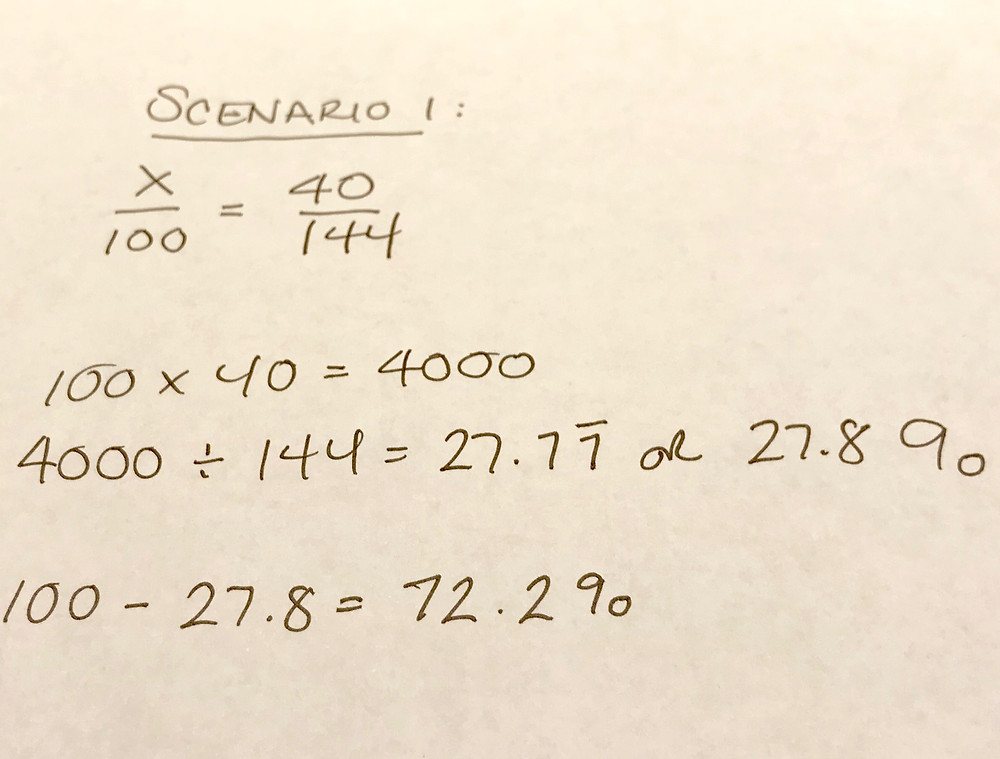 SCENARIO 1:
X/100 = 40/144
100 x 40 = 4000
4000 ÷ 144 = 27.77̅ or 27.8%
100 - 27.8 = 72.2%